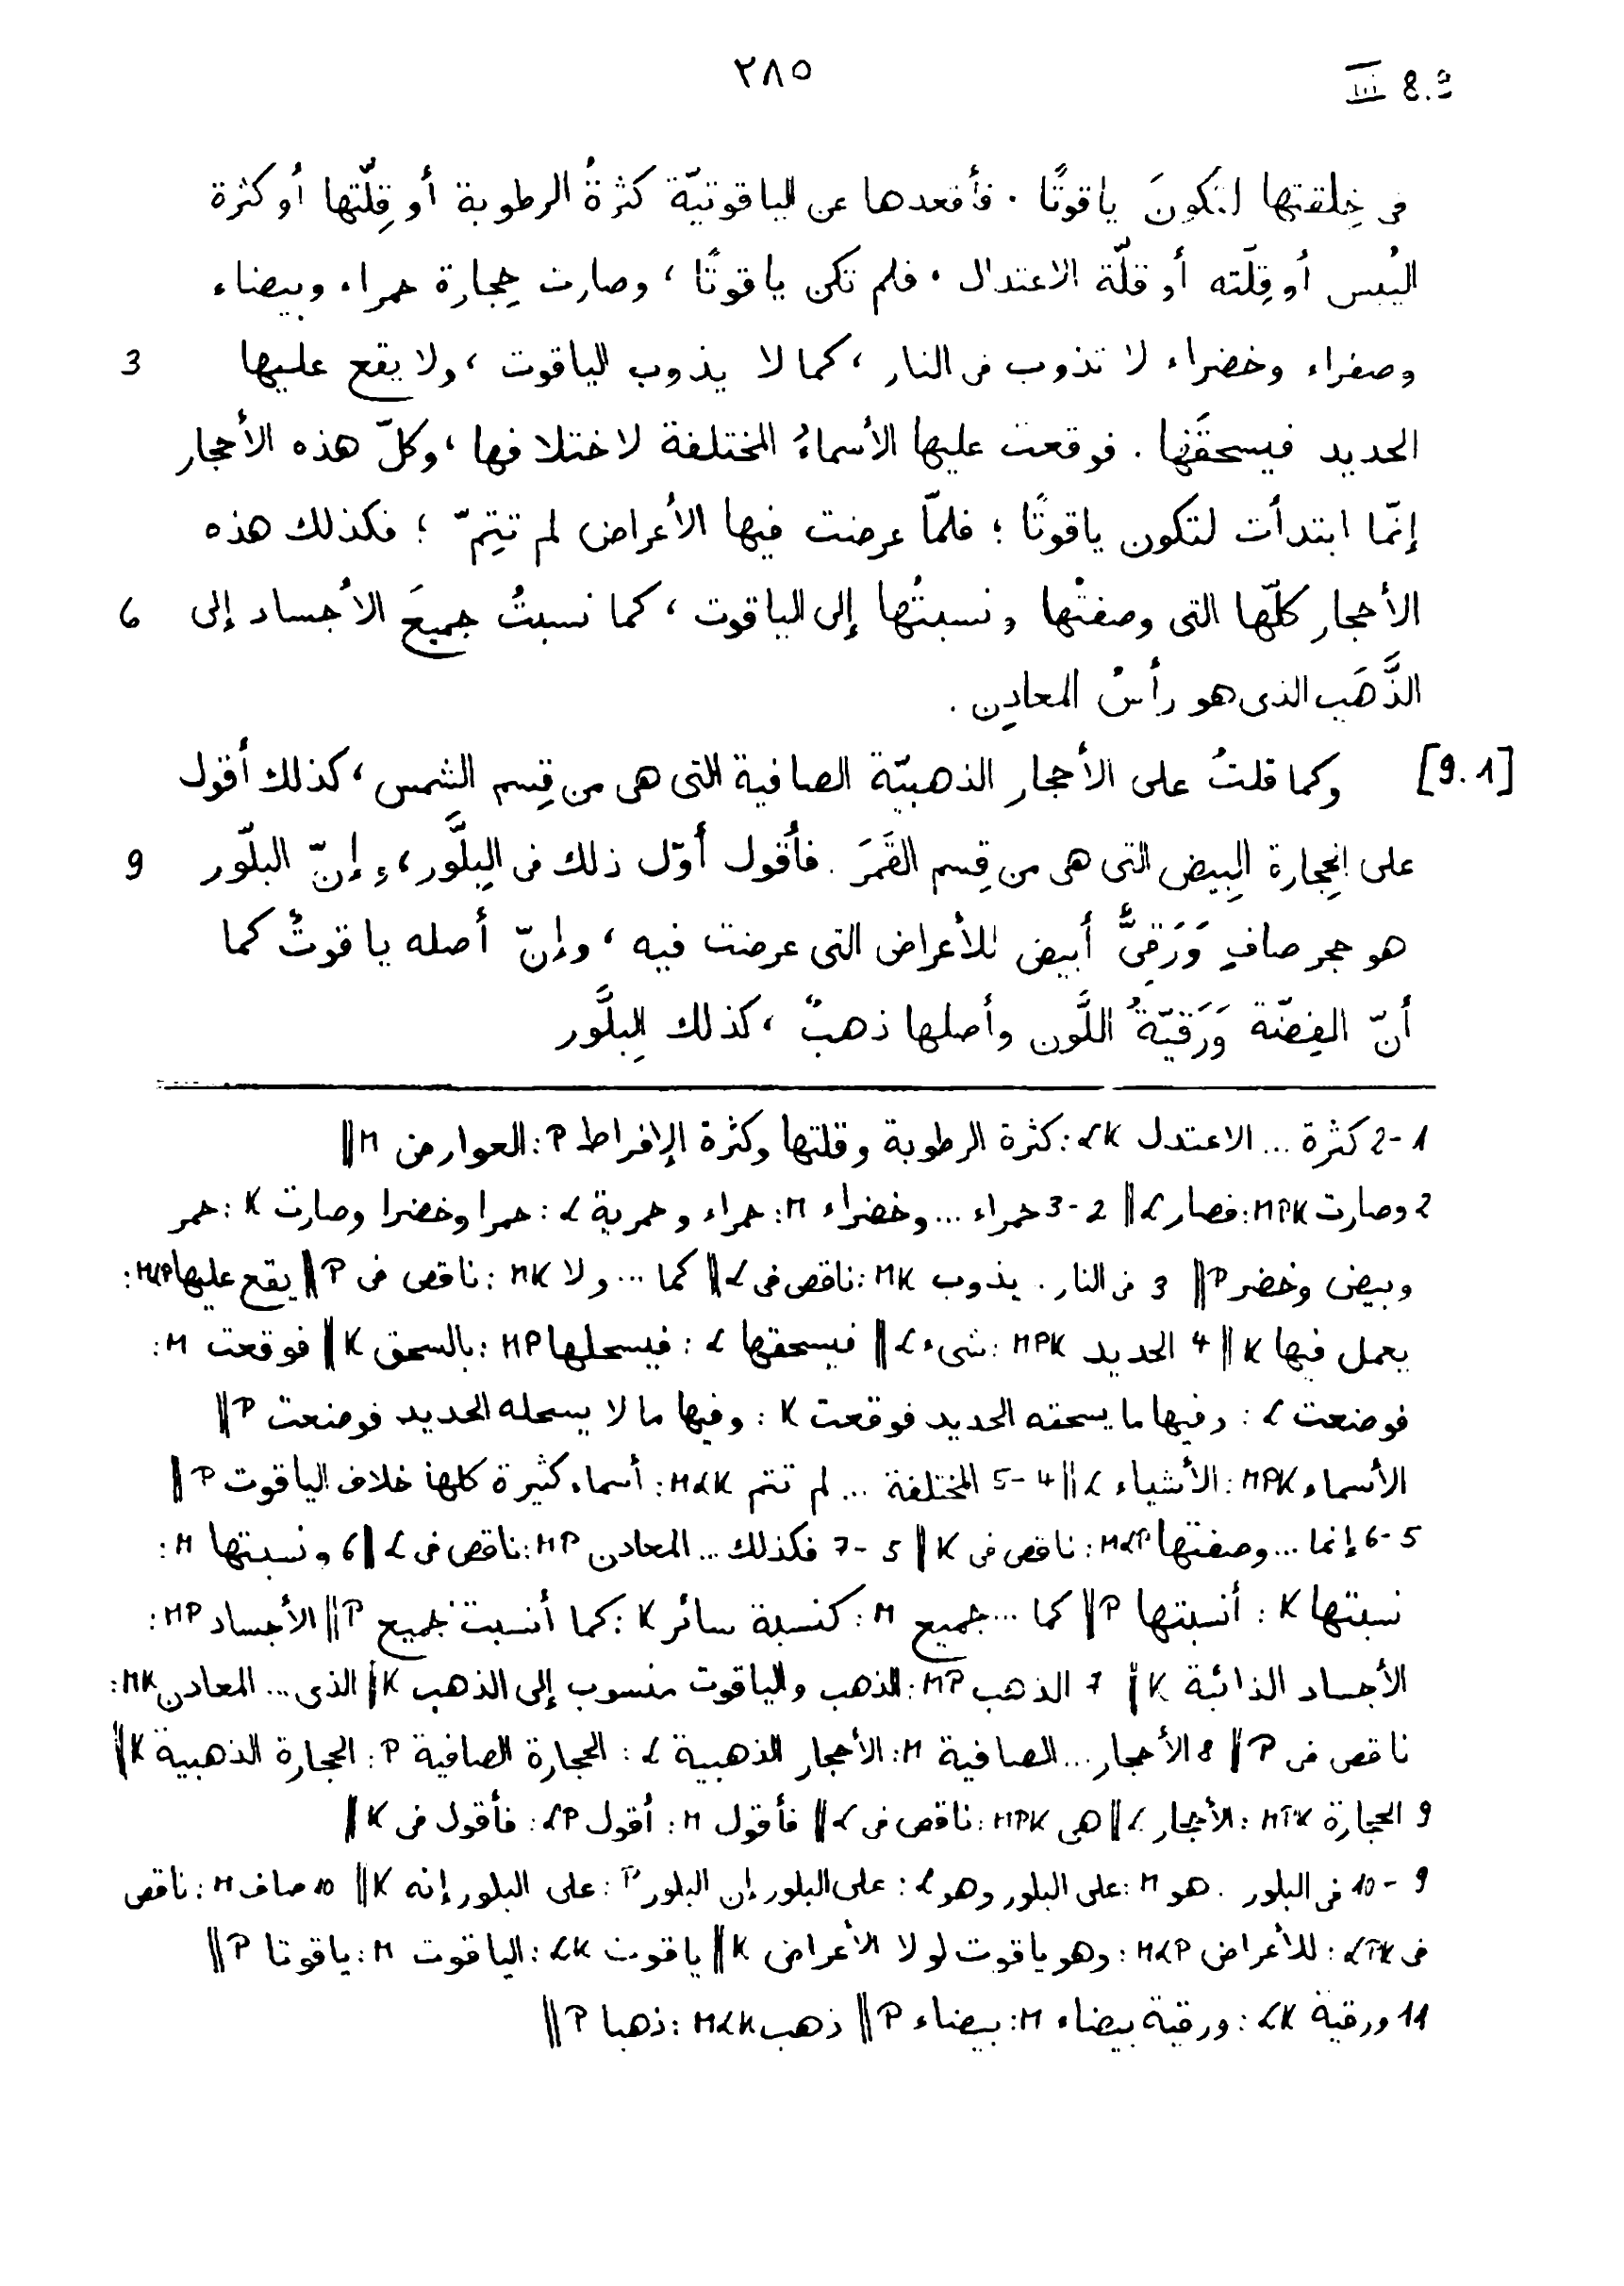 ٢٨٥
III 8.9
فى خِلقتها لتكونَ ياقوتًا . فأقعدها عن الياقوتيّة كثرةُ الرطوبة أو قِلّتها أو كثرة
اليُبس أو قِلَته أو قلّة الاعتدال . فلم تكن ياقوتًا ، وصارت حِجارة حمراء وبيضاء
3 وصفراء وخضراء لا تذوب فى النار ، كما لا يذوب الياقوت ، ولا يقع عليها
الحديد فيسحقَها . فوقعت عليها الأسماءُ المختلفة لاختلافها ، وكلّ هذه الأحجار
إنّما ابتدأت لتكون ياقوتًا ؛ فلمّا عرضت فيها الأعراض لم تتِمّ ؛ فكذلك هذه
6 الأحجار كلّها التى وصفتُها ونسبتُها إلى الياقوت ، كما نسبتُ جميعَ الأجساد إلى
الذَّهَب الذى هو رأسُ المعادِن .
[9.1] وكما قلتُ على الأحجار الذهبيّة الصافية التى هى من قِسم الشمس ، كذلك أقول
9 على الحِجارة البِيض التى هى من قِسم القَمَرَ . فأقول أوّل ذلك فى البِلَّور ، إنّ البلّور
هو حجر صافٍ وَرَقِىٌّ أبيض للأعراض التى عرضت فيه ، وإنّ أصله ياقوتٌ كما
أنّ الفِضّة وَرَقيّةُ اللَّون وأصلها ذهبٌ ، كذلك البِلَّور
1-2 كثرة ... الاعتدل LK: كثرة الرطوبة وقلتها وكثرة الإفراط P: العوارض M ||
2 وصارت MPK: فصار L || 2-3 حمراء ... وخضراء M: حمراء وحمرية L: حمرا وخضرا وصارت K: حمر
وبيض وخضر P || 3 فى النار . يذوب MK: ناقص فى L || كما ... ولا MK: ناقص فى P || يقع عليها MLP:
يعمل فيها K || 4 الحديد MPK: شىء L || فيسحقها L: فيسحلها MP: بالسحق K || فوقعت M:
فوضعت L: وفيها ما يسحقه الحديد فوقعت K: وفيها ما لا يسحله الحديد فوضعت P ||
الأسماء MPK: الأشياء L || 4-5 المختلفة ... لم تتم MLK: أسماء كثيرة كلها خلاف الياقوت P ||
5-6 إنما ... وصفتها MLP: ناقص فى K || 5-7 فكذلك ... المعادن MP: ناقص فى L || 6 ونسبتها M:
نسبتها K: أنسبتها P || كما ... جميع M: كنسبة سائر K: كما أنسبت جميع P || الأجساد MP:
الأجساد الذائبة K || 7 الذهب MP: الذهب والياقوت منسوب إلى الذهب K || الذى ... المعادن MK:
ناقص فى P || 8 الأحجار ... الصافية M: الأحجار الذهبية L: الحجارة الصافية P: الحجارة الذهبية K ||
9 الحجارة MPK: الأحجار L || هى MPK: ناقص فى L || فأقول M: أقول LP: فأقول فى K ||
9-10 فى البلور . هو M: على البلور وهو L: على البلور إن البلور P: على البلور إنه K || 10 صاف M: ناقص
فى LPK: للأعراض MLP: وهو ياقوت لولا الأعراض K || ياقوت LK: الياقوت M: ياقوتا P ||
11 ورقية LK: ورقية بيضاء M: بيضاء P || ذهب MLK: ذهبا P ||